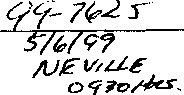 99-7625
5/6/99
NEVILLE
0930 Hrs.